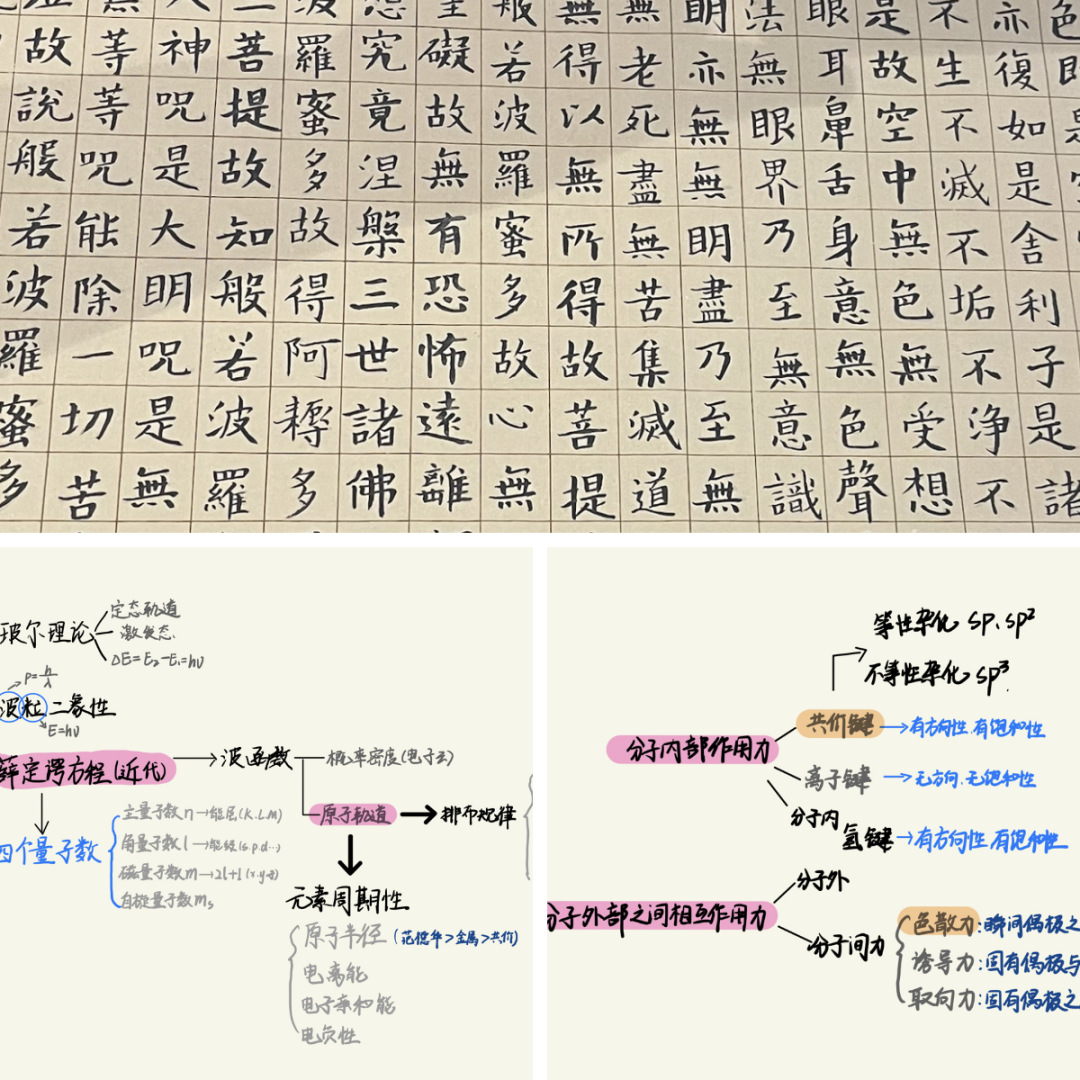 色即是空
亦復如是舍利子是諸
不生不滅不垢不浄不
是故空中無色無受想
眼耳鼻舌身意無色聲
法無眼界乃至無意識
明亦無無明盡乃至無
無老死盡無苦集滅道
無得以無所得故菩提
般若波羅蜜多故心無
礙故無有恐怖遠離
想究竟涅槃三世諸佛
波羅蜜多故得阿耨多
三菩提故知般若波羅
大神咒是大明咒是無
無等等咒能除一切苦
故說般若波羅蜜多
玻尔理论
定态轨道
激发态
ΔE=E₂-E₁=hν
P=h/λ
波粒二象性
E=hν
薛定谔方程(近代)
波函数
概率密度(电子云)
原子轨道
排布规律
四个量子数
主量子数n→能层(K.L.M)
角量子数l→能级(s.p.d…)
磁量子数m→2l+1(x.y.z)
自旋量子数ms
元素周期性
原子半径(范德华>金属>共价)
电离能
电子亲和能
电负性
等性杂化 sp、sp²
不等性杂化 sp³
分子内部作用力
共价键→有方向性.有饱和性
离子键→无方向.无饱和性
分子内
氢键→有方向性 有饱和性
分子外部之间相互作用力
分子外
分子间力
色散力:瞬间偶极之
诱导力:固有偶极与
取向力:固有偶极之